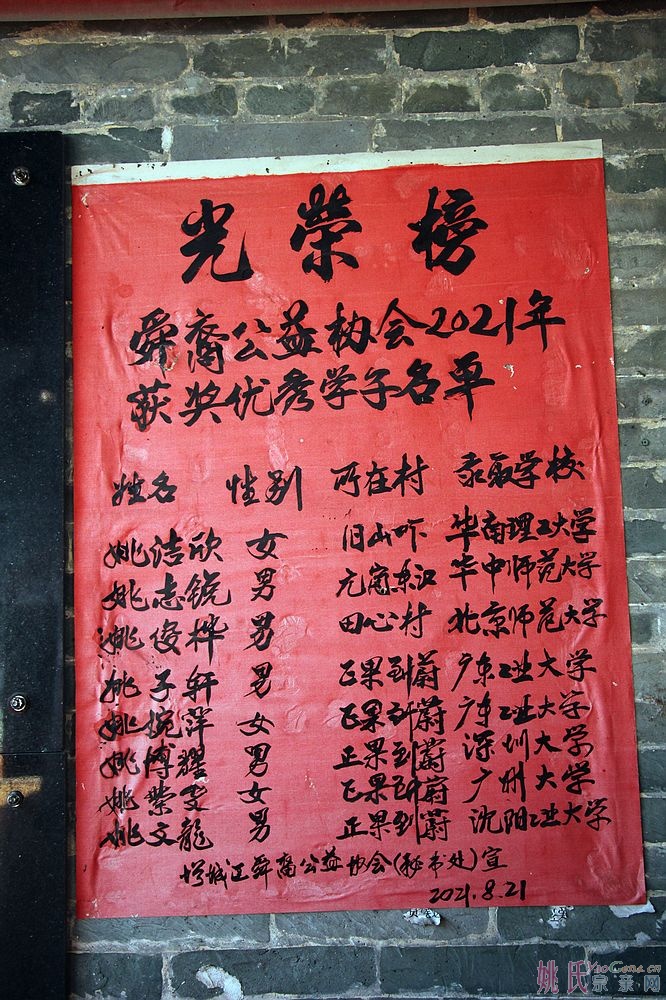 光榮榜
舜裔公益协会2021年
获奖优秀学子名单
姓名 性别 所在村 录取学校
姚洁欣 女 旧山吓 华南理工大学
姚志锐 男 元岗东汉 华中师范大学
姚俊桦 男 田心村 北京师范大学
姚子轩 男 正果到蔚 广东工业大学
姚悦萍 女 正果到蔚 广东工业大学
姚博耀 男 正果到蔚 深圳大学
姚荣雯 女 正果到蔚 广州大学
姚文龍 男 正果到蔚 沈阳工业大学
增城区舜裔公益协会(秘书处)宣
2021.8.21
姚氏宗亲网
YaoGens.cn